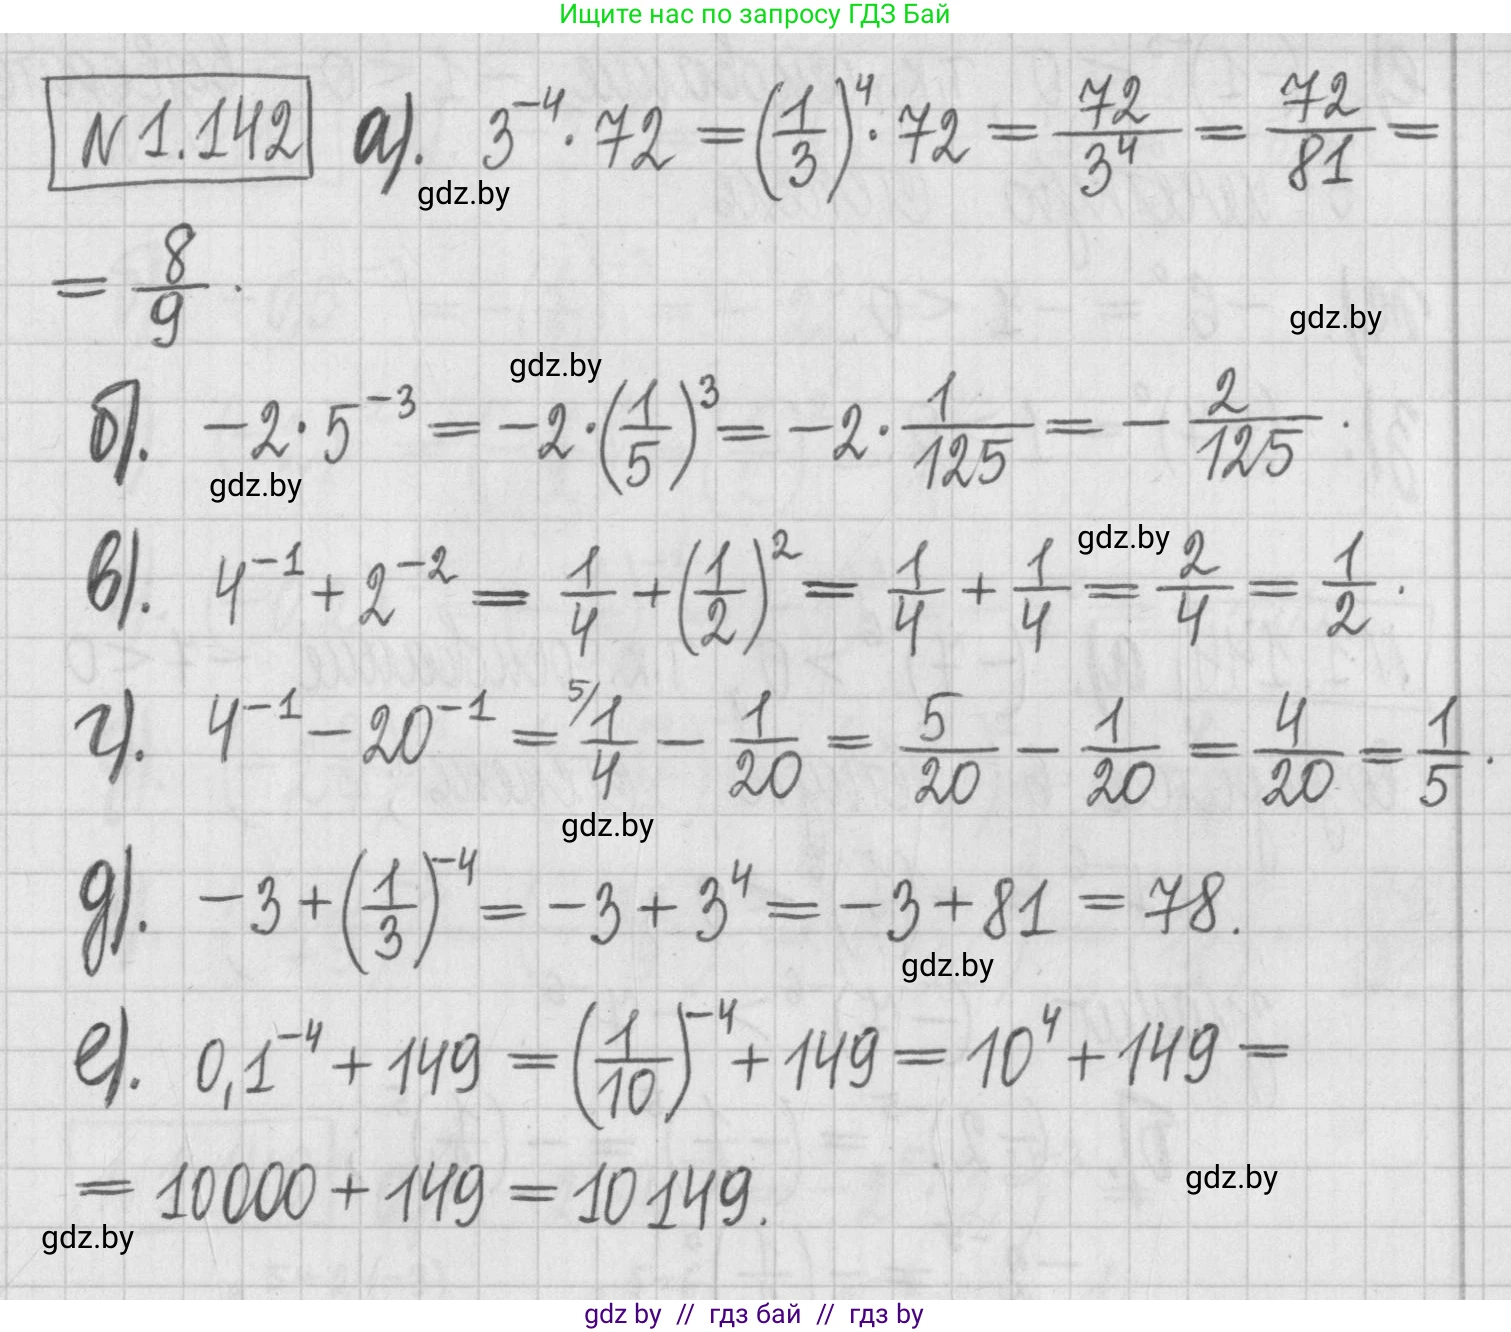 Ищите нас по запросу ГДЗ Бай
N 1.142 а). 3^{-4} · 72 = (1/3)^4 · 72 = 72/3^4 = 72/81 =
gdz.by
= 8/9 .
gdz.by
gdz.by
б). -2 · 5^{-3} = -2 · (1/5)^3 = -2 · 1/125 = - 2/125 .
gdz.by
gdz.by
в). 4^{-1} + 2^{-2} = 1/4 + (1/2)^2 = 1/4 + 1/4 = 2/4 = 1/2 .
г). 4^{-1} - 20^{-1} = ^{5/} 1/4 - 1/20 = 5/20 - 1/20 = 4/20 = 1/5 .
gdz.by
д). -3 + (1/3)^{-4} = -3 + 3^4 = -3 + 81 = 78.
gdz.by
е). 0,1^{-4} + 149 = (1/10)^{-4} + 149 = 10^4 + 149 =
= 10000 + 149 = 10149.
gdz.by
gdz.by
gdz by // гдз бай // гдз by